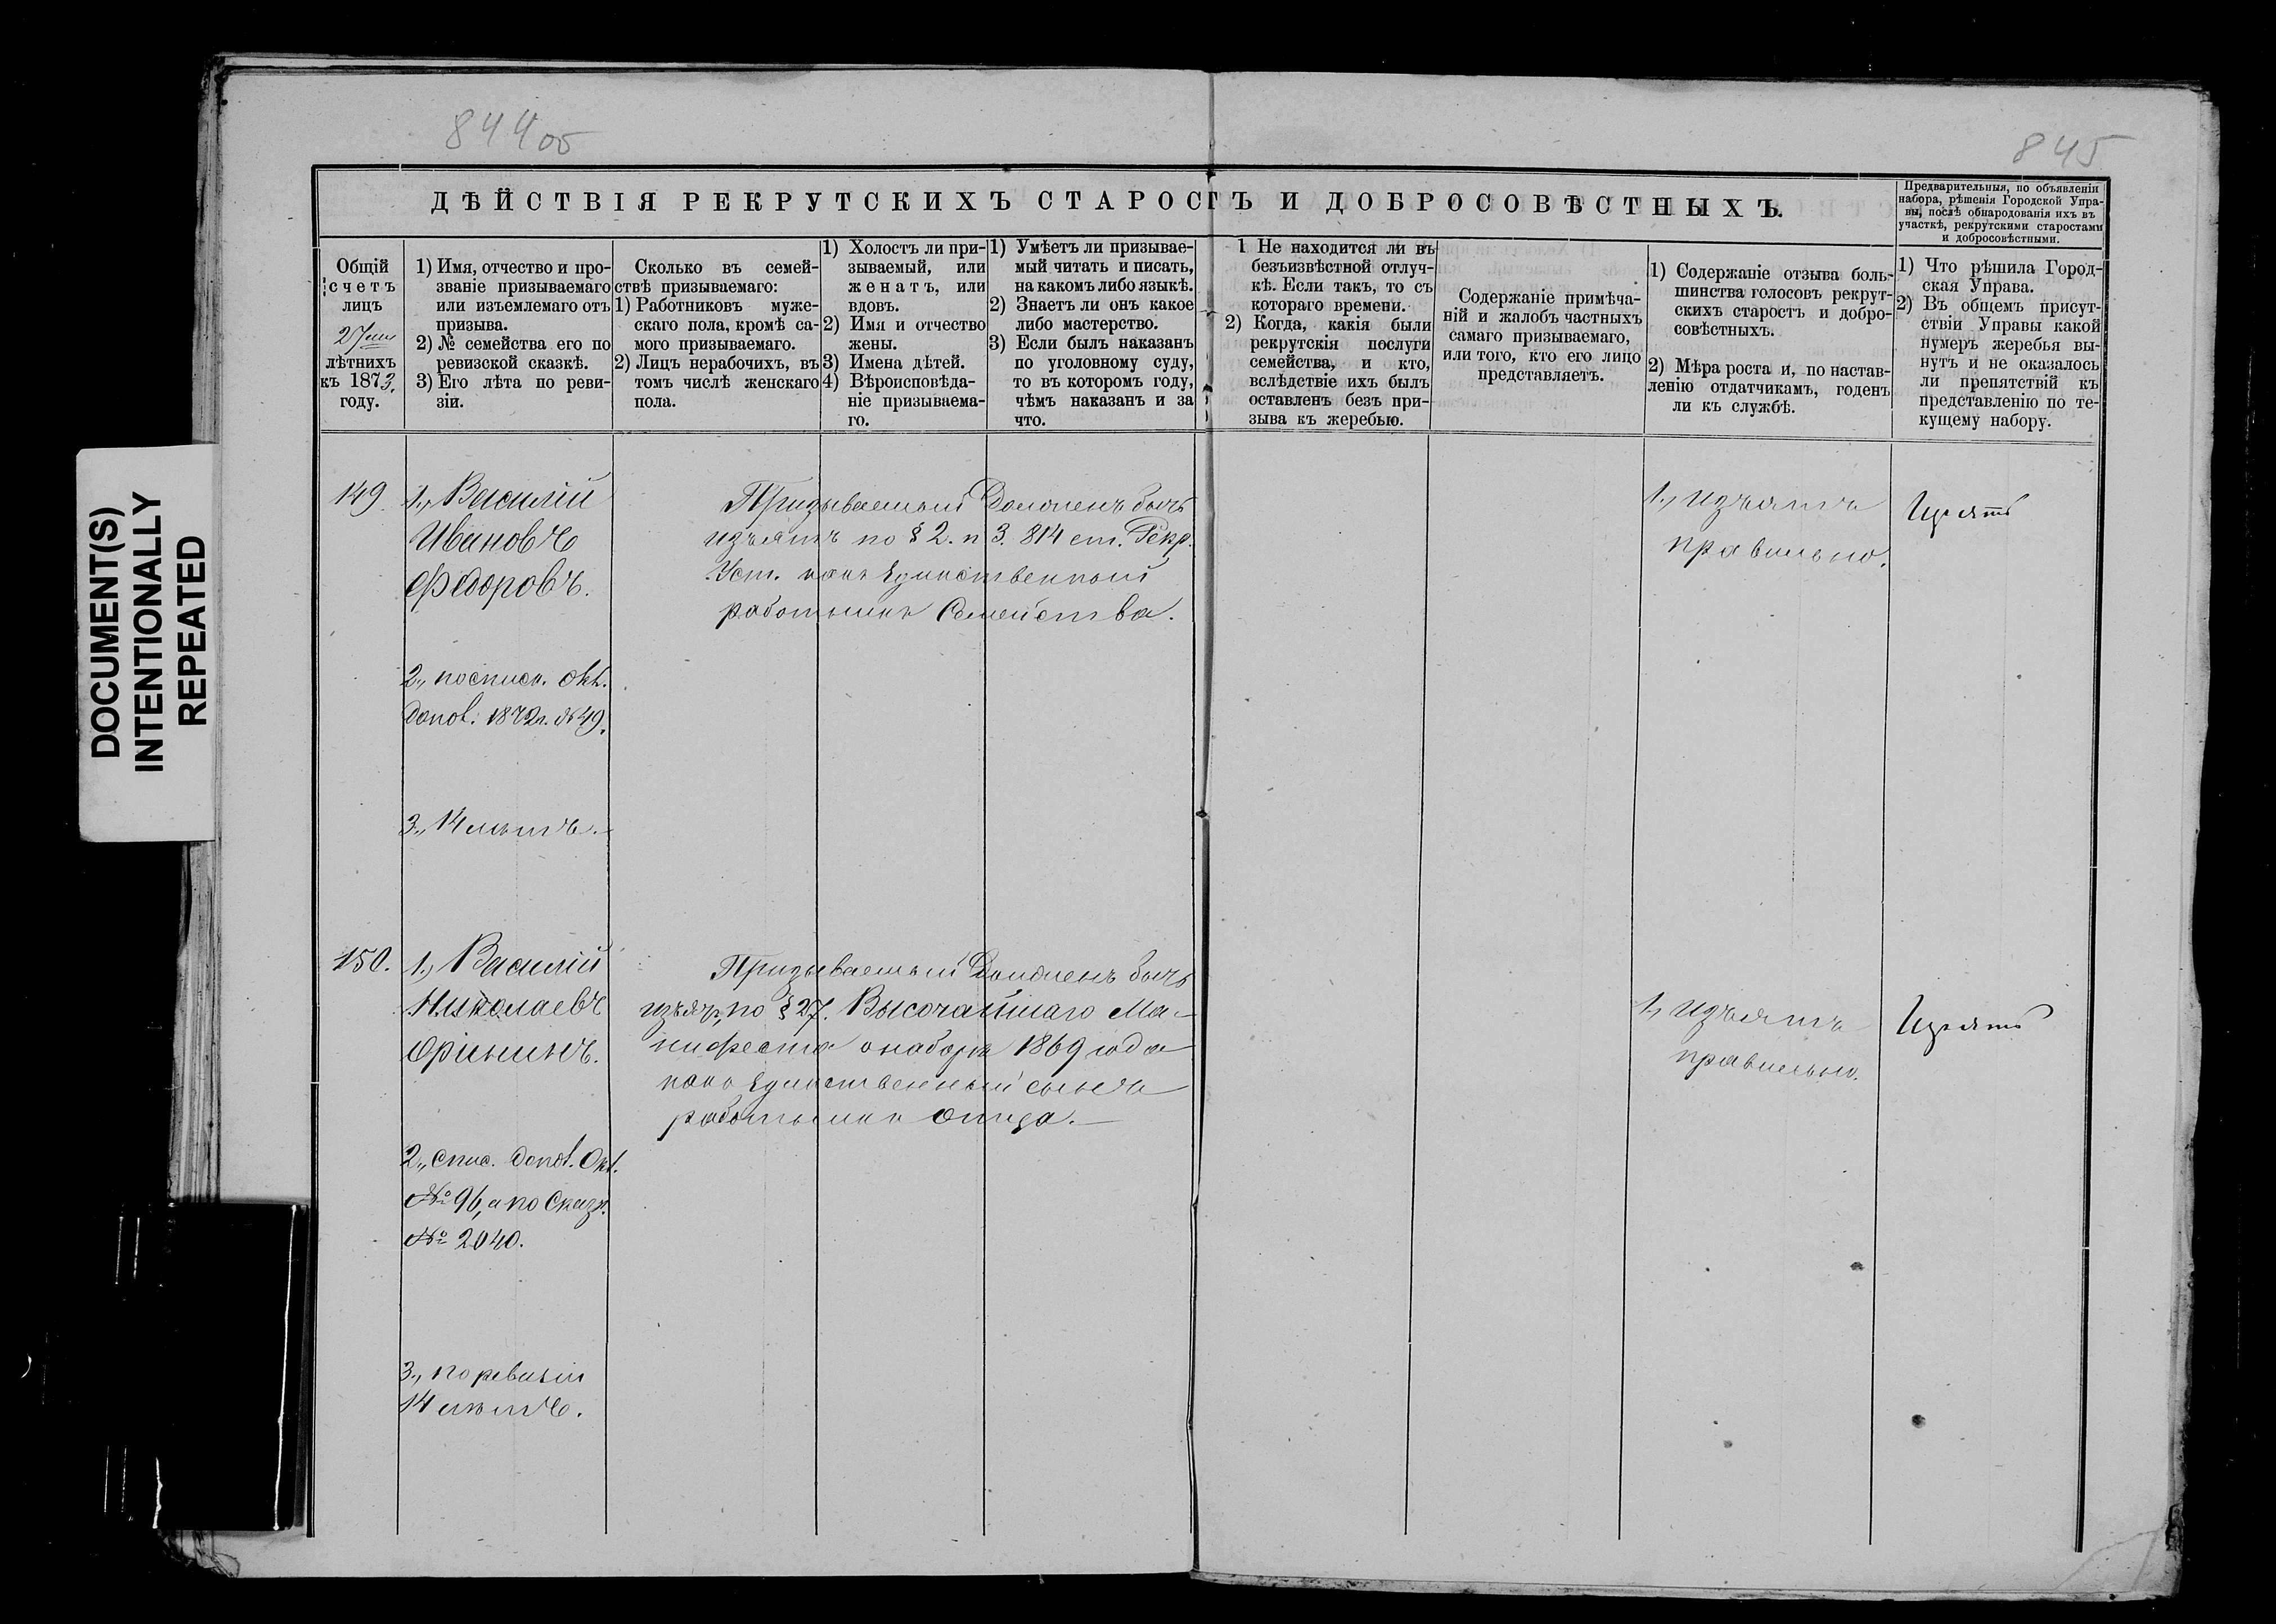 DOCUMENT(S)
INTENTIONALLY
REPEATED
844 об
845
ДѢЙСТВІЯ РЕКРУТСКИХЪ СТАРОСТЪ И ДОБРОСОВѢСТНЫХЪ.
Предварительныя, по объявленія
набора, рѣшенія Городской Упра-
вы, послѣ обнародованія ихъ въ
участкѣ, рекрутскими старостами
и добросовѣстными.
Общій
счетъ
лицъ
27ми
лѣтнихъ
къ 1873.
году.
1) Имя, отчество и про-
званіе призываемаго
или изъемлемаго отъ
призыва.
2) № семейства его по
ревизской сказкѣ.
3) Его лѣта по реви-
зіи.
Сколько въ семей-
ствѣ призываемаго:
1) Работниковъ муже-
скаго пола, кромѣ са-
мого призываемаго.
2) Лицъ нерабочихъ, въ
томъ числѣ женскаго
пола.
1) Холостъ ли при-
зываемый, или
женатъ, или
вдовъ.
2) Имя и отчество
жены.
3) Имена дѣтей.
4) Вѣроисповѣда-
ніе призываема-
го.
1) Умѣетъ ли призывае-
мый читать и писать,
на какомъ либо языкѣ.
2) Знаетъ ли онъ какое
либо мастерство.
3) Если былъ наказанъ
по уголовному суду,
то въ которомъ году,
чѣмъ наказанъ и за
что.
1 Не находится ли въ
безъизвѣстной отлуч-
кѣ. Если такъ, то съ
котораго времени.
2) Когда, какія были
рекрутскія послуги
семейства, и кто,
вслѣдствіе ихъ былъ
оставленъ безъ при-
зыва къ жеребью.
Содержаніе примѣча-
ній и жалобъ частныхъ
самаго призываемаго,
или того, кто его лицо
представляетъ.
1) Содержаніе отзыва боль-
шинства голосовъ рекрут-
скихъ старостъ и добро-
совѣстныхъ.
2) Мѣра роста и, по настав-
ленію отдатчикамъ, годенъ
ли къ службѣ.
1) Что рѣшила Город-
ская Управа.
2) Въ общемъ присут-
ствіи Управы какой
нумеръ жеребья вы-
нутъ и не оказалось
ли препятствій къ
представленію по те-
кущему набору.
149.
1., Василій
Ивановъ
Федоровъ.
2., по списк. Окл.
допол. 1872 г. № 49.
3., 14 лѣтъ.
Призываемый Долженъ быть
изъятъ по § 2. п 3. 814 ст. Рекр.
Уст. какъ Единственный
работникъ Семейства.
1., Изъятъ
правильно.
Изъятъ
150.
1., Василій
Николаевъ
2., спис. допол. Окл.
№ 96, а по Сказк.
№ 2040.
3., по ревизіи
14 лѣтъ.
Призываемый Долженъ быть
изъятъ, по § 27. Высочайшаго Ма-
нифеста о наборѣ 1869 года
какъ Единственный сынъ
работникъ отца.
1., Изъятъ
правильно.
Изъятъ